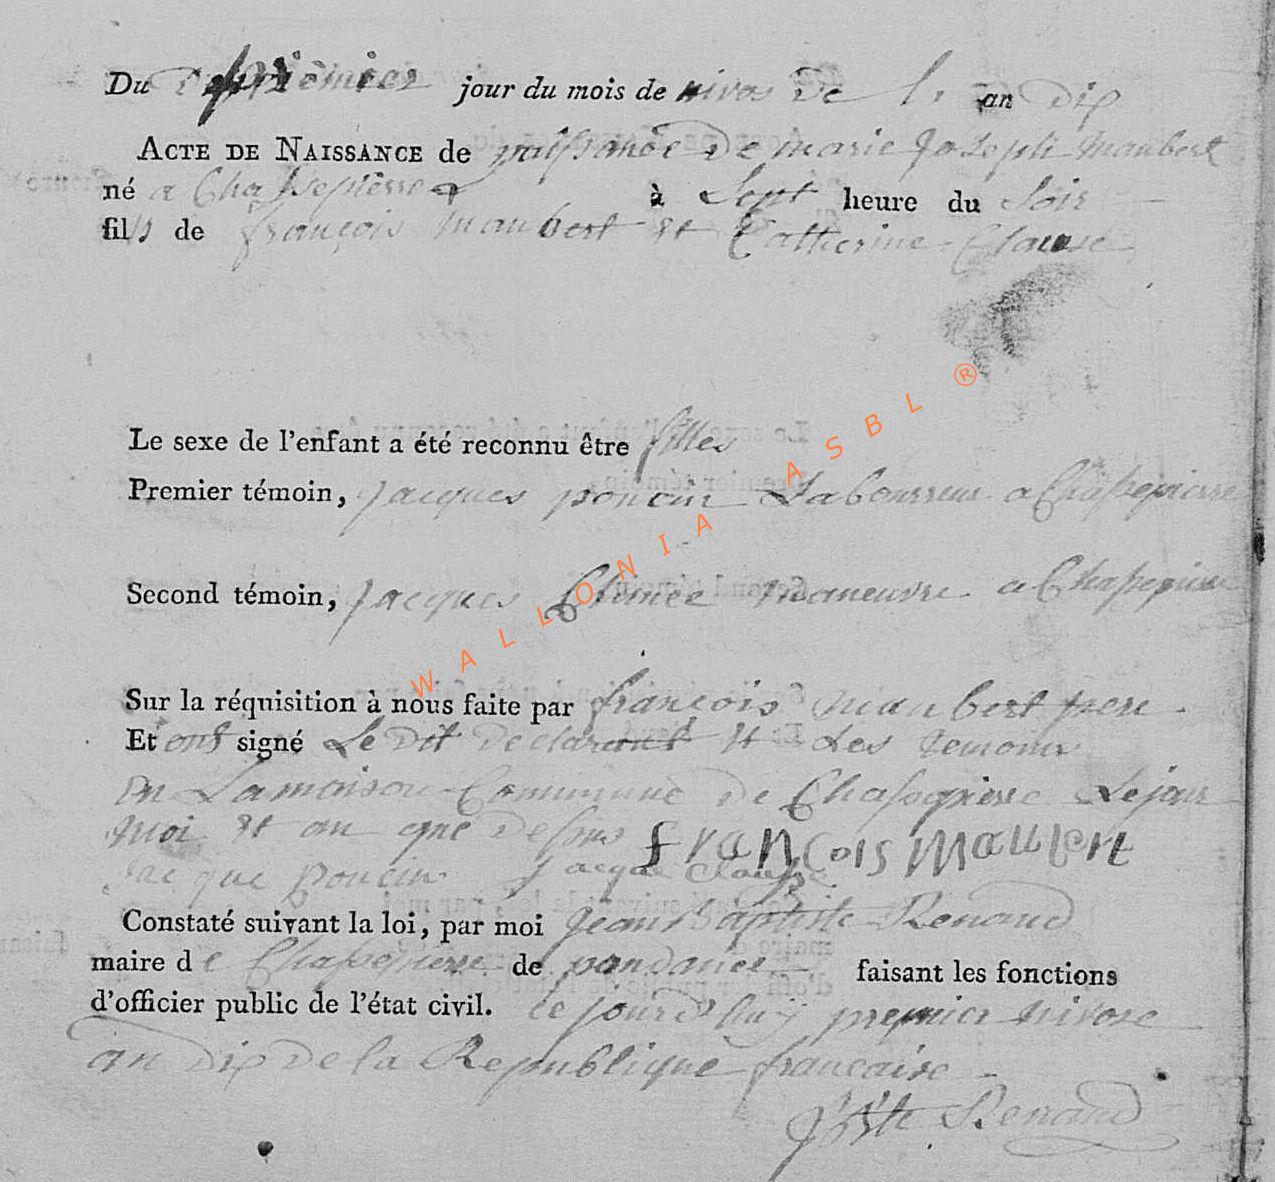 Du premier jour du mois de nivos de l' an dix
ACTE DE NAISSANCE de naissance De marie Joseph maubert
né a Chassepierre à Sept heure du Soir
fils de françois maubert et Catherine Clause
Le sexe de l'enfant a été reconnu être filles
Premier témoin, jacques poncin Laboureur a Chassepierre
Second témoin, jacques maneuvre a Chassepierre
Sur la réquisition à nous faite par françois maubert pere
Et ont signé Le dit declarant et Les temoins
en La maison Commune de Chassepierre Le jour
moi et an que dessus françois maubert
jacque poncin jacque clause
Constaté suivant la loi, par moi jean Baptiste Renaud
maire de Chassepierre de faisant les fonctions
d'officier public de l'état civil. ce jourd'huy premier nivose
an dix de la Republique francaise
Renaud
WALLONIA ASBL ®